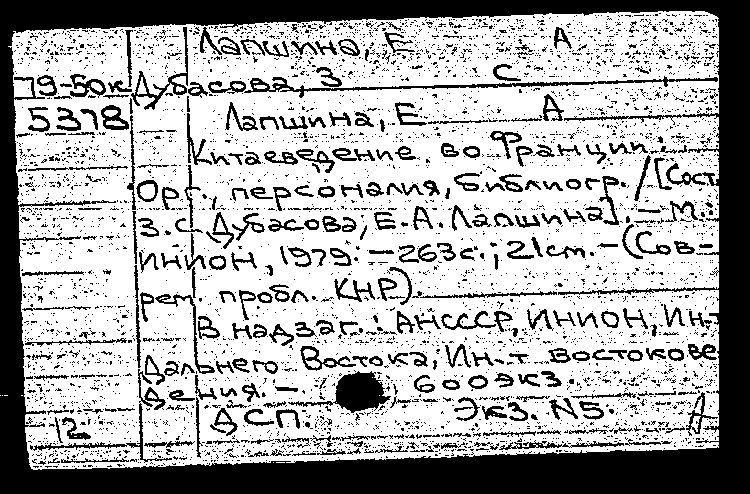 Лапшина, Е А
79-50к Дубасова, З С
5378 Лапшина, Е А
Китаеведение во Франции:
Орг., персоналия, библиогр. / [Сост.
З.С Дубасова, Е.А. Лапшина]. – М.:
ИНИОН, 1979. – 263с.; 21см. – (Сов-
рем. пробл. КНР).
В надзаг.: АНСССР, ИНИОН, Ин-т
Дальнего Востока, Ин-т востокове
дения. – 600экз.
12 ДСП. Экз. N5. А